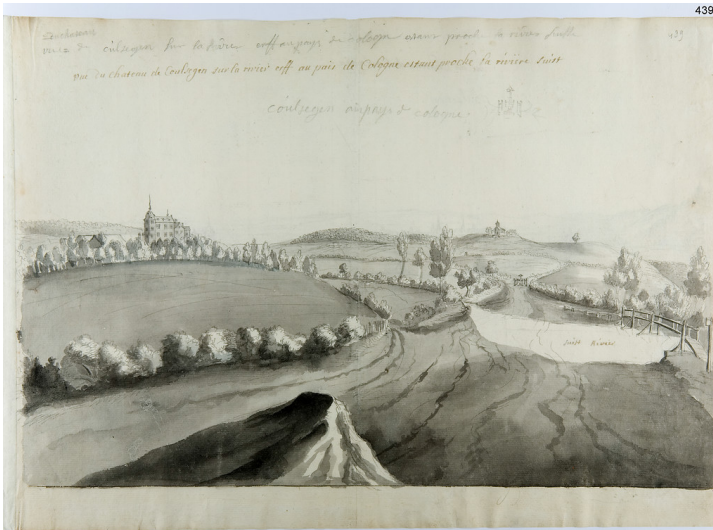 439
du chateau
veue de culsegen sur la rivire erff au pays de cologne estant proche la riviere suist
189
vue du chateau de Coulsegen sur la rivier erff au païs de Cologne estant proche la riviere Suist
coulsegen au pays d cologne
Suist Rivier